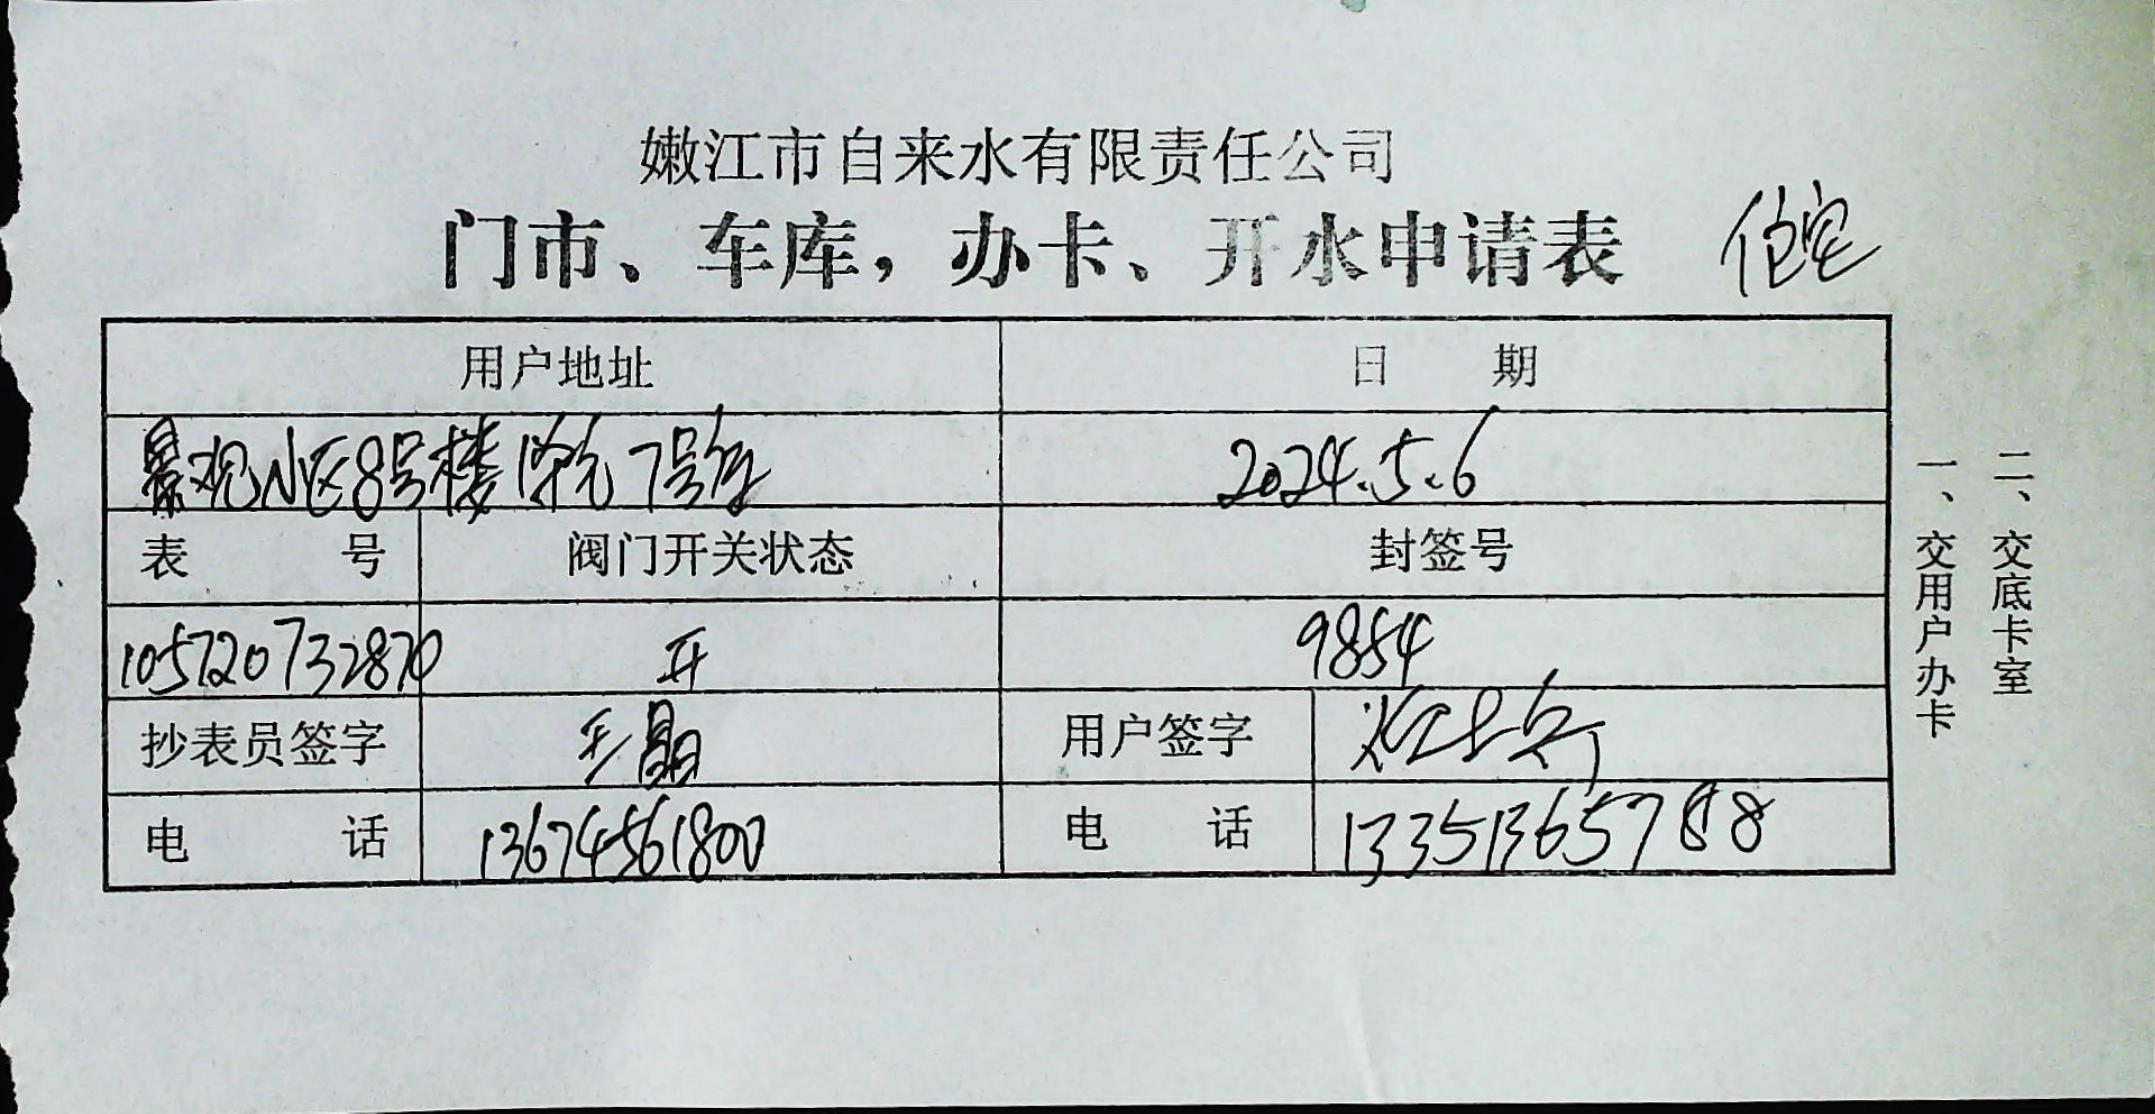 嫩江市自来水有限责任公司
门市、车库，办卡、开水申请表 住宅
用户地址 日 期
景观小区8号楼1单元7号门 2024.5.6
表 号 阀门开关状态 封签号
105720732870 开 9854
抄表员签字 王晶 用户签字
电 话 13674561800 电 话 13351365788
一、交用户办卡
二、交底卡室